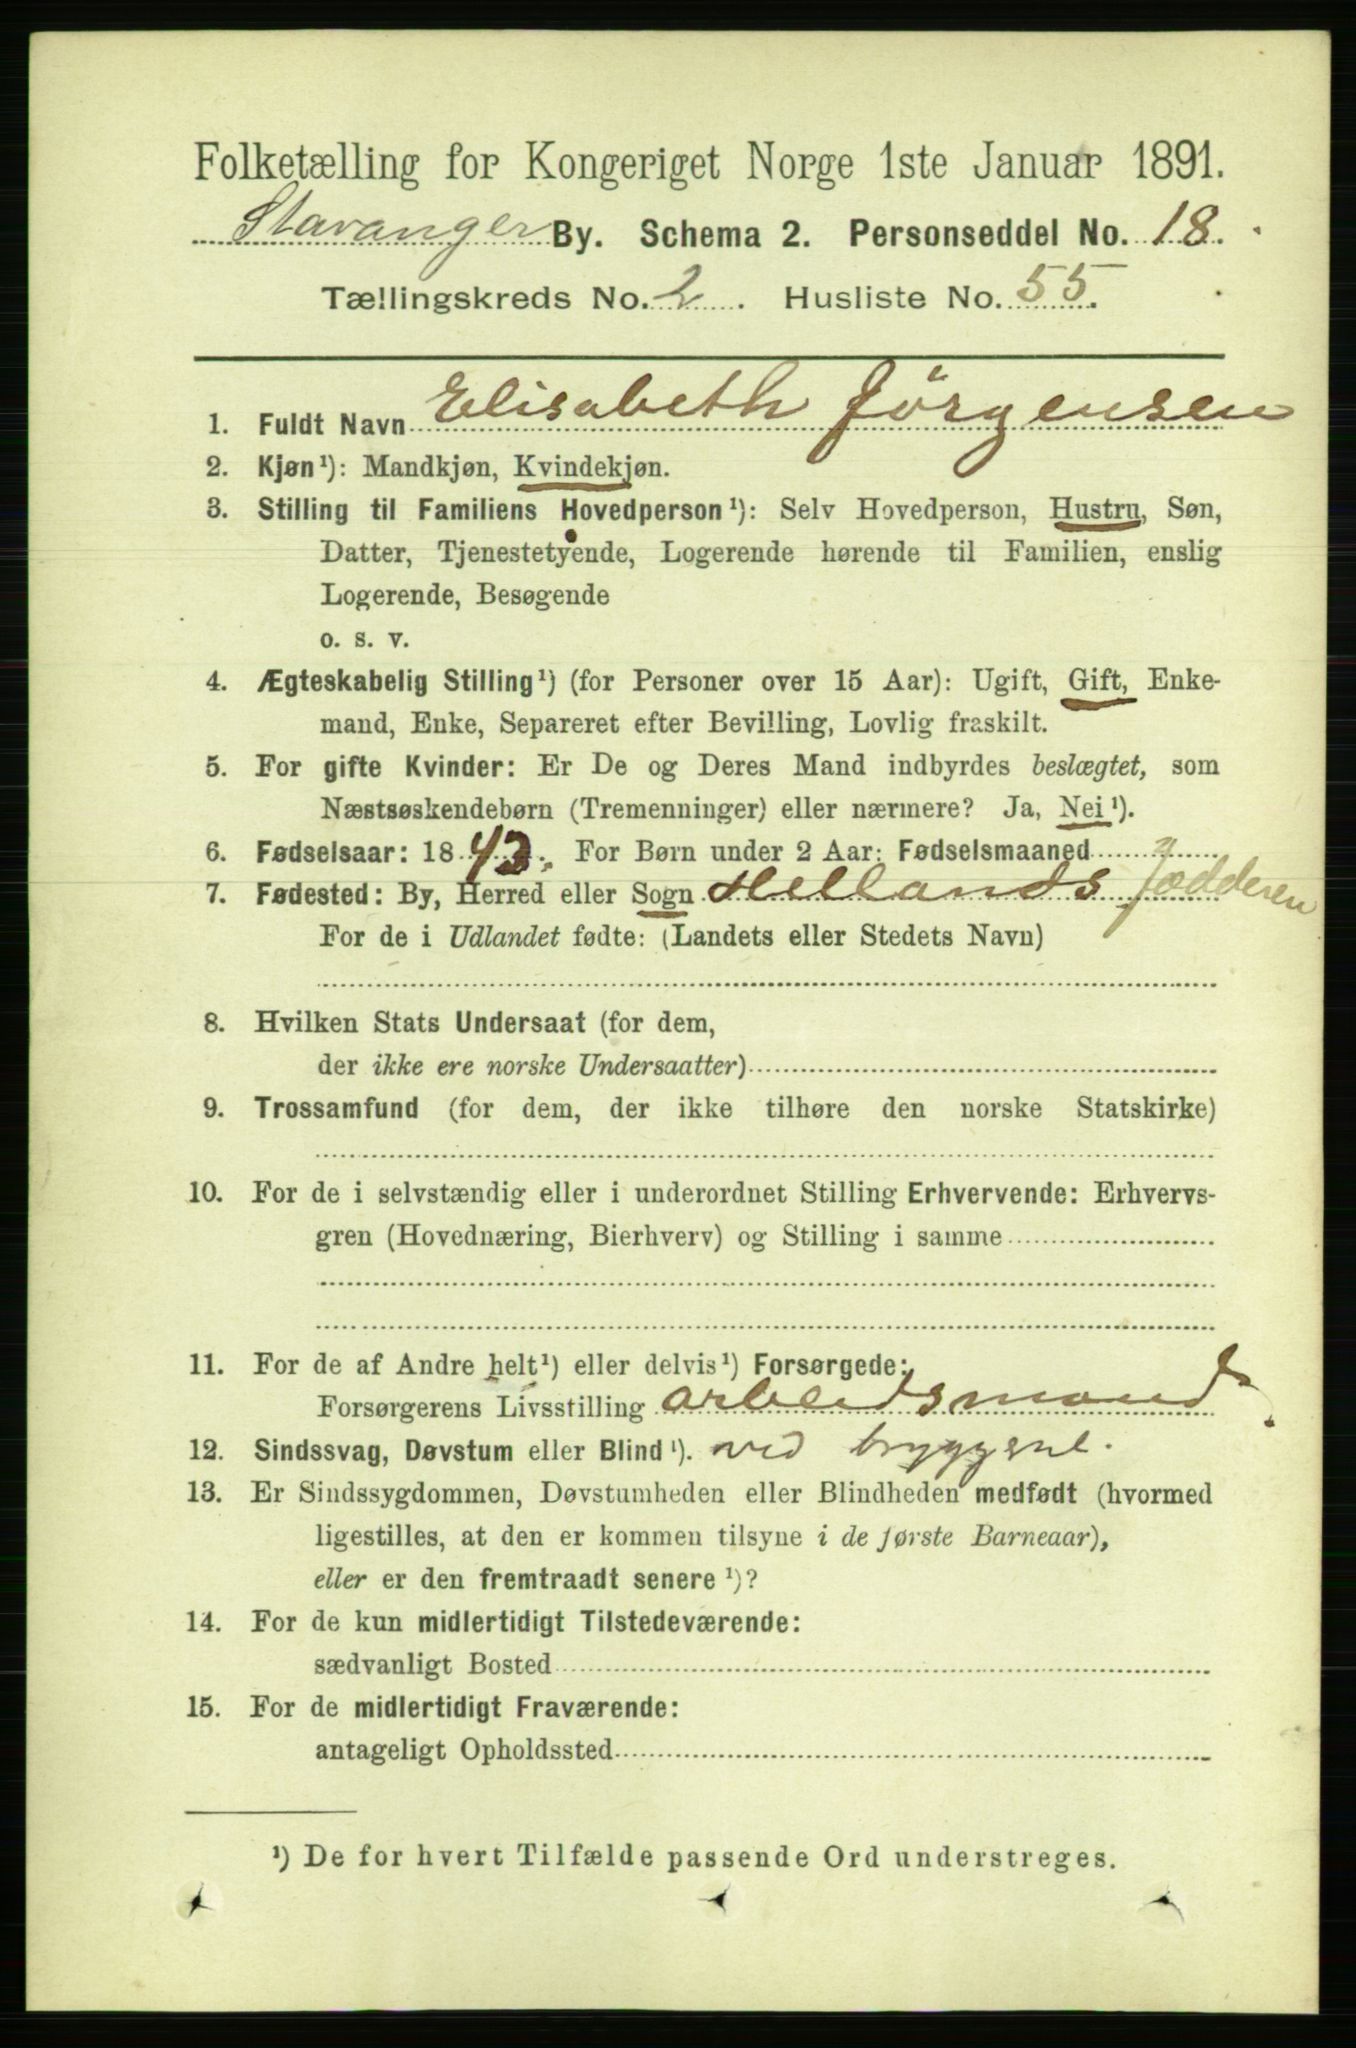 Folketælling for Kongeriget Norge 1ste Januar 1891.
Stavanger By. Schema 2. Personseddel No. 18.
Tællingskreds No. 2. Husliste No. 55.
1. Fuldt Navn Elisabeth Jörgensen
2. Kjøn¹): Mandkjøn, Kvindekjøn.
3. Stilling til Familiens Hovedperson¹): Selv Hovedperson, Hustru, Søn,
Datter, Tjenestetyende, Logerende hørende til Familien, enslig
Logerende, Besøgende
o. s. v.
4. Ægteskabelig Stilling¹) (for Personer over 15 Aar): Ugift, Gift, Enke-
mand, Enke, Separeret efter Bevilling, Lovlig fraskilt.
5. For gifte Kvinder: Er De og Deres Mand indbyrdes beslægtet, som
Næstsøskendebørn (Tremenninger) eller nærmere? Ja, Nei¹).
6. Fødselsaar: 1843. For Børn under 2 Aar: Fødselsmaaned
7. Fødested: By, Herred eller Sogn Hellands Jædderen
For de i Udlandet fødte: (Landets eller Stedets Navn)
8. Hvilken Stats Undersaat (for dem,
der ikke ere norske Undersaatter)
9. Trossamfund (for dem, der ikke tilhøre den norske Statskirke)
10. For de i selvstændig eller i underordnet Stilling Erhvervende: Erhvervs-
gren (Hovednæring, Bierhverv) og Stilling i samme
11. For de af Andre helt¹) eller delvis¹) Forsørgede:
Forsørgerens Livsstilling arbeidsmand
12. Sindssvag, Døvstum eller Blind¹). ved bryggene.
13. Er Sindssygdommen, Døvstumheden eller Blindheden medfødt (hvormed
ligestilles, at den er kommen tilsyne i de første Barneaar),
eller er den fremtraadt senere¹)?
14. For de kun midlertidigt Tilstedeværende:
sædvanligt Bosted
15. For de midlertidigt Fraværende:
antageligt Opholdssted
¹) De for hvert Tilfælde passende Ord understreges.